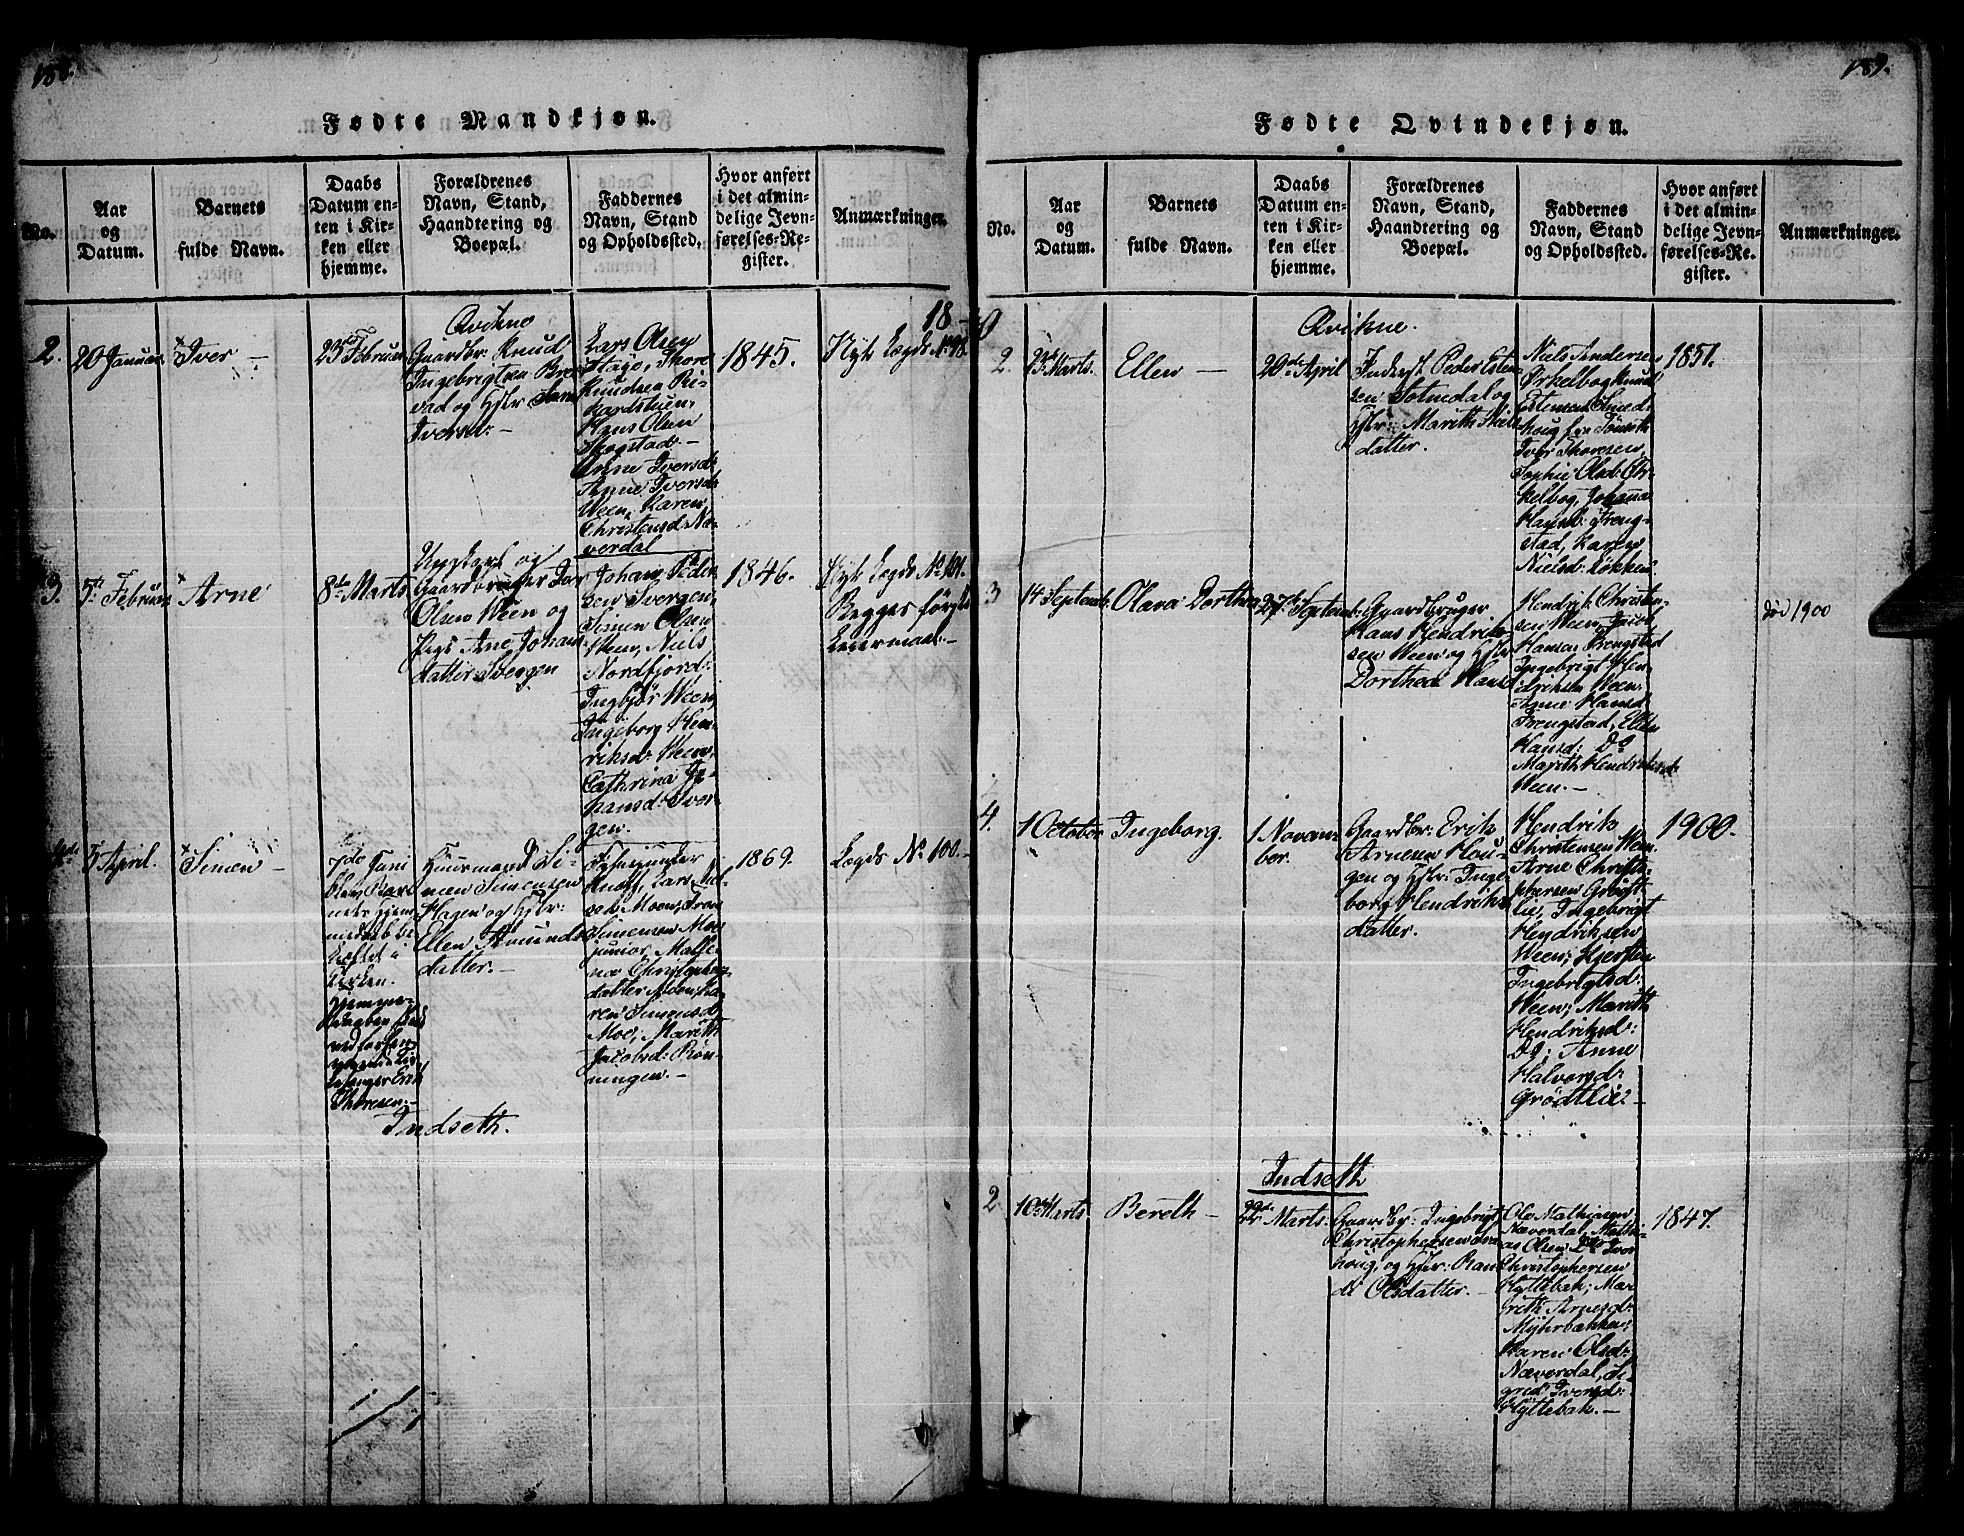 188.
Fødte Mandkjøn.
No.
Aar
og
Datum.
Barnets
fulde Navn.
Daabs
Datum en-
ten i Kir-
ken eller
hjemme.
Forældrenes
Navn, Stand,
Haandtering og
Boepæl.
Faddernes
Navn, Stand
og Opholdssted.
Hvor anført
i det almin-
delige Jevn-
førelses-Re-
gister.
Anmærkninger.
18
Qvikne
2.
20 Januar
Iver -
23de Februar
Gaardbr: Knud
Ingebrigtsen Bre-
vad og Hstr
Iversd: -
Lars Olsen
Stagø, Thore
Knudsen Ri-
kardstuen,
Hans Olsen
Skogstad: -
Anne Iversd:
Anne Iversd:
Ween, Karen
Christensd: Næ-
verdal
1845.
Nyt Lægds No 98.
3.
5te Februar
Arne
8de Marts
Ungkarl og
Gaardbruger
Olsen Ween og
Pige Ane Johans-
datter Svergen
Johan Peder-
sen Svergen,
Simen Olsen
Ween, Niels
Nordfjord:
Ingbjør Ween,
Ingeborg Hen-
riksd: Ween,
Cathrina Jo-
hansd: Sver-
gen.
1846.
Nyt Lægds No 101.
Begges første
Leiermaal. -
5 April.
Simen -
7de Juni
nets Hjem-
medaab be-
kræftet i
Kirken.
Hjemme-
Erik
Thoresen. -
Huusmand Si-
men Simensen
Hagen og Hstr:
Ellen Amunds-
datter. -
Lars
sen Moen,
Simensen Moe
junior,
Christopher-
datter Moen, Ka-
ren Simensd:
Moe, Marith
Jacobsd: Røn-
ningen. -
1869.
Lægds No 100. -
Indseth.
189.
Fødte Qvindekjøn.
No.
Aar
og
Datum.
Barnets
fulde Navn.
Daabs
Datum en-
ten i Kir-
ken eller
hjemme.
Forældrenes
Navn, Stand,
Haandtering og
Boepæl.
Faddernes
Navn, Stand
og Opholdssted.
Hvor anført
i det almin-
delige Jevn-
førelses-Re-
gister.
Anmærkninger.
Qvikne.
2.
Marts.
Ellen -
20de April
Inderst Peder Esten-
sen og
Hstr: Marith Niels-
datter.
Niels Andersen
Ørkelbog Knud
Estensen Smed-
houg fra Tønseth
Iver Thoresen,
Sophie Olsd: Ør-
kelbog, Johanna
Hansd: Freng-
stad, Karen
Nielsd: Løkken
1851.
3
14 Septemb:
Olava Dorthea
27de Septemb:
Gaardbruger
Hans Hendrik-
sen Ween og Hstr
Dorthea Hans
Hendrik Christen-
sen Ween,
Hansen Frengstad
Ingebrigt Hen-
driksen Ween
Anne Hansd
Frengstad, Ellen
Hansd: Do
Marith Hendriksd:
Ween. -
død 1900
4.
1 October
Ingeborg.
1 Novem-
ber.
Gaardbr: Erik
Arnesen Hou-
gen og Hstr: Inge-
borg Hendriks-
datter.
Hendrik
Christensen Ween.
Arne Christo-
phersen Grødt-
lie, Ingebrigt
Hendriksen
Ween, Kjersten
Ingebrigtsd:
Ween, Marith
Hendriksd:
Do, Anne
Halvorsd:
Grødtlie? -
1900.
Indseth
2
10de Marts.
Bereth -
22de Marts.
Gaardbr: Ingebrigt
Christophersen
houg, og Hstr: Ran-
di Olsdatter. -
Ole Mathiasen
Næverdal, Mathi-
as Olsen Do Iver
Christophersen
Hyttebak, Mar-
rith Arnesd:
Myhrbakken,
Karen Olsd:
Næverdal, Si-
grid Iversd:
Hyttebak. -
1847.